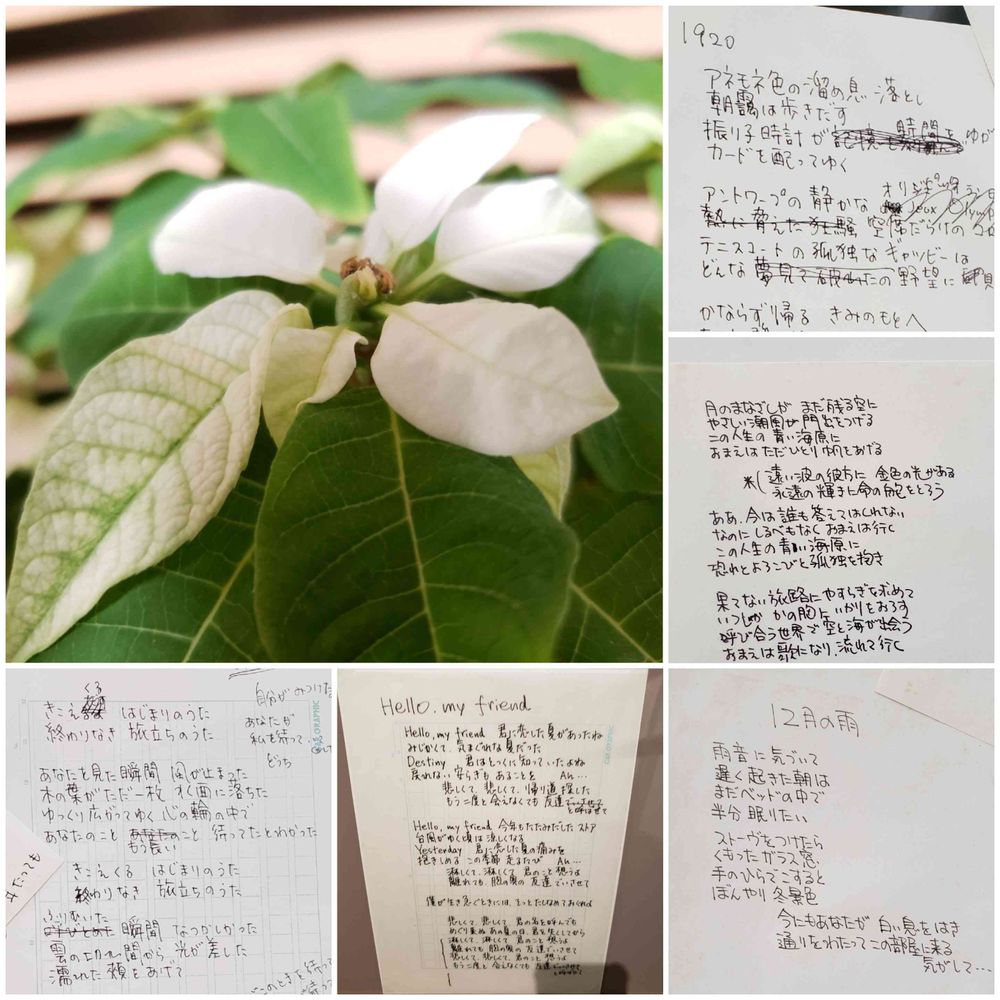 1920
アネモネ色の溜め息 落とし
朝靄は歩きだす
振り子時計が 時間を ゆが
カードを配ってゆく
アントワープの静かな オリンピック
熱に脅えた狂騒 空席だらけの
テニスコートの孤独なギャツビーは
どんな 夢見て破れたの野望に
かならず帰る きみのもとへ
月のまなざしが まだ残る空に
やさしい潮風が門出をつげる
この人生の 青い海原に
おまえはただひとり 帆をあげる
*(遠い波の彼方に 金色の光がある
永遠の輝きに命のかじをとろう
ああ、今は誰も答えてはくれない
なのに しるべもなく おまえは行く
この人生の青い海原に
恐れとよろこびと孤独を抱き
果てない旅路にやすらぎを求めて
いつしか かの胸に いかりをおろす
呼び合う世界で空と海が出会う
おまえは歌になり、流れて行く
自分が みつけた
くる
きこえる はじまりのうた
終わりなき 旅立ちのうた
あなたが
私を待って
どっち
あなたを見た瞬間 風が止まった
木の葉がただ一枚 すぐ西に落ちた
ゆっくり広がってゆく 心の輪の中で
あなたのこと あなたのこと 待ってたとわかった
もう長い
きこえくる はじまりのうた
終わりなき 旅立ちのうた
ふりむいた
呼びとめた 瞬間 なつかしかった
雲の切れ間から 光が差した
濡れた頬をあげて
このときを待って
Hello, my friend
Hello, my friend 君に恋した夏があったね
みじかくて、気まぐれな夏だった
Destiny 君はとっくに知っていたよね
戻れない安らぎもあることを Ah...
悲しくて、悲しくて、帰り道探した
もう二度と会えなくても 友達でいさせて
と呼ばせて
Hello, my friend 今年もたたみだした ストア
台風がゆく頃は涼しくなる
Yesterday 君に恋した夏の痛みを
抱きしめる この季節 走るたび Ah...
淋しくて、淋しくて、君のこと想うよ
離れても、胸の奥の 友達でいさせて
僕が生き急ぐときには、そっとたしなめておくれよ
悲しくて、悲しくて 君の名を呼んでも
めぐり来ぬ あの夏の日、君を失くしてから
淋しくて、淋しくて 君のこと想うよ
離れても、胸の奥の 友達でいさせて
悲しくて、悲しくて、君のこと想うよ
もう二度と会えなくても 友達でいさせて
と呼ばせて
12月の雨
雨音に気づいて
遅く起きた朝は
まだベッドの中で
半分眠りたい
ストーヴをつけたら
くもったガラス窓
手のひらでこすると
ぼんやり冬景色
今にもあなたが 白い息をはき
通りをわたって この部屋に来る
気がして…